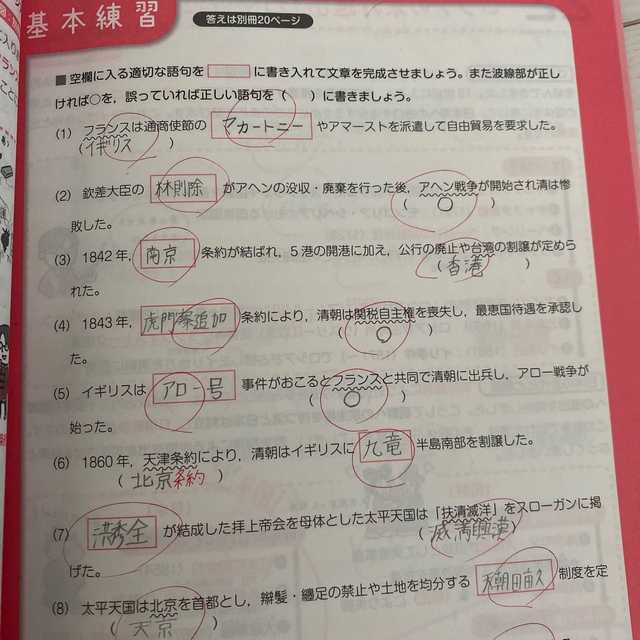 基本練習
答えは別冊20ページ
■ 空欄に入る適切な語句を　　　に書き入れて文章を完成させましょう。また波線部が正し
ければ○を，誤っていれば正しい語句を（　）に書きましょう。
(1) フランスは通商使節の マカートニー やアマーストを派遣して自由貿易を要求した。
（イギリス　）
(2) 欽差大臣の 林則除 がアヘンの没収・廃棄を行った後，アヘン戦争が開始され清は惨
（ ○ ）
敗した。
(3) 1842年，南京 条約が結ばれ，5港の開港に加え，公行の廃止や台湾の割譲が定めら
（香港　）
れた。
(4) 1843年，虎門寨追加 条約により，清朝は関税自主権を喪失し，最恵国待遇を承認し
（ ○ ）
た。
(5) イギリスは アロー号 事件がおこるとフランスと共同で清朝に出兵し，アロー戦争が
（ ○ ）
始った。
(6) 1860年，天津条約により，清朝はイギリスに 九竜 半島南部を割譲した。
（北京条約）
(7) 洪秀全 が結成した拝上帝会を母体とした太平天国は「扶清滅洋」をスローガンに掲
（滅満興漢）
げた。
(8) 太平天国は北京を首都とし，辮髪・纏足の禁止や土地を均分する 天朝田畝 制度を定
（天京　）